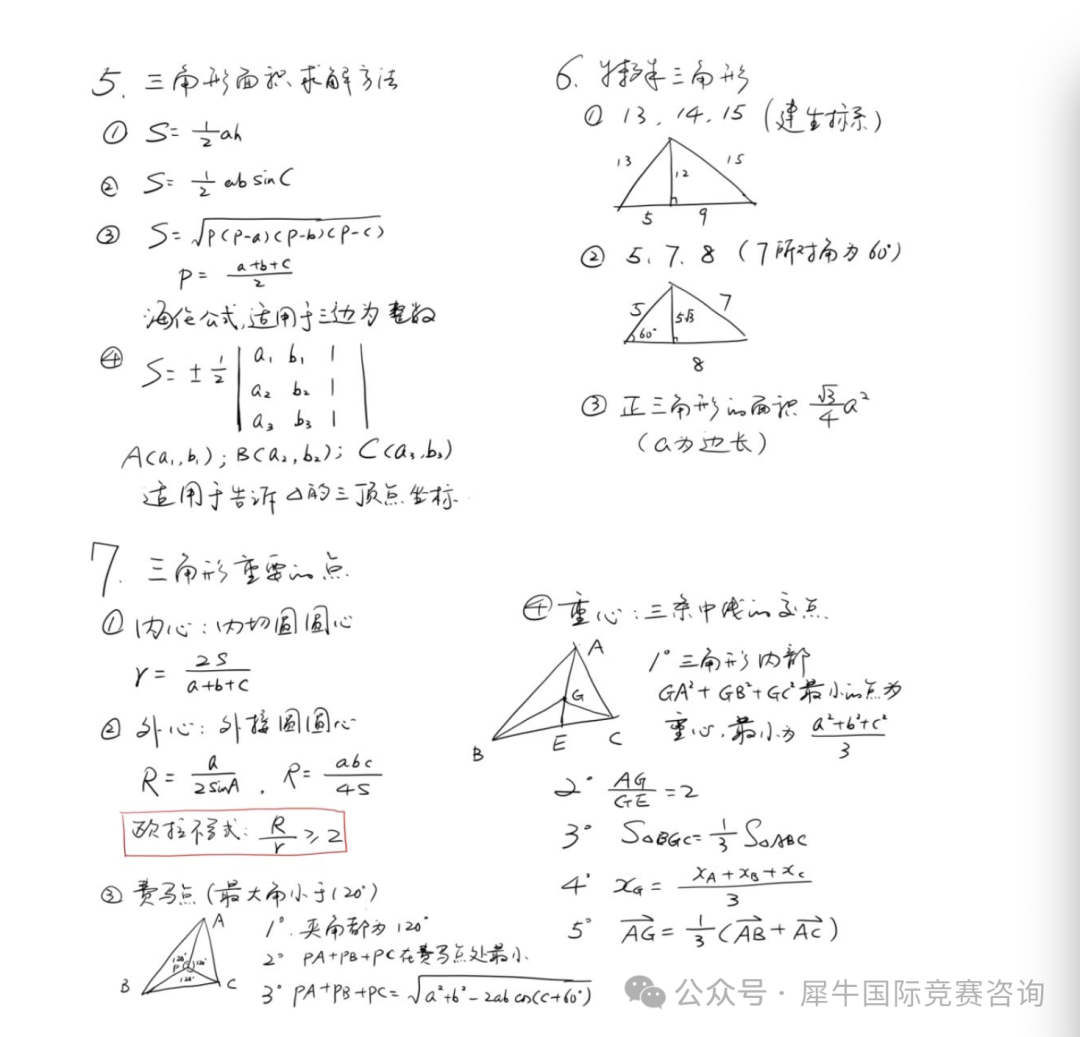 5. 三角形面积求解方法
① S= 1/2 ah
② S= 1/2 ab sin C
③ S= √P(P-a)(P-b)(P-c)
P = a+b+c/2
海伦公式,适用于三边为整数
④ S= ± 1/2 | a₁ b₁ 1 |
| a₂ b₂ 1 |
| a₃ b₃ 1 |
A(a₁,b₁); B(a₂,b₂); C(a₃,b₃)
适用于告诉△的三顶点坐标.
6. 特殊三角形
① 13, 14, 15 (建坐标系)
13 15
12
5 9
② 5、7、8 (7所对角为60°)
5 7
5√3
60°
8
③ 正三角形的面积 √3/4 a²
(a为边长)
7. 三角形重要的点
① 内心:内切圆圆心
r = 2S/a+b+c
② 外心:外接圆圆心
R = a/2sinA , R = abc/4S
欧拉不等式: R/r ≥ 2
③ 费马点 (最大角小于120°)
A
120° P 120°
120°
B C
1°. 夹角都为120°
2° PA+PB+PC在费马点处最小
3° PA+PB+PC= √a²+b²-2ab cos(C+60°)
④ 重心:三条中线的交点
A
G
B E C
1° 三角形内部
GA²+GB²+GC²最小的点为
重心,最小为 a²+b²+c²/3
2° AG/GE = 2
3° S△BGC = 1/3 S△ABC
4° xG = xA+xB+xC/3
5° AG = 1/3 (AB + AC)
公众号 · 犀牛国际竞赛咨询